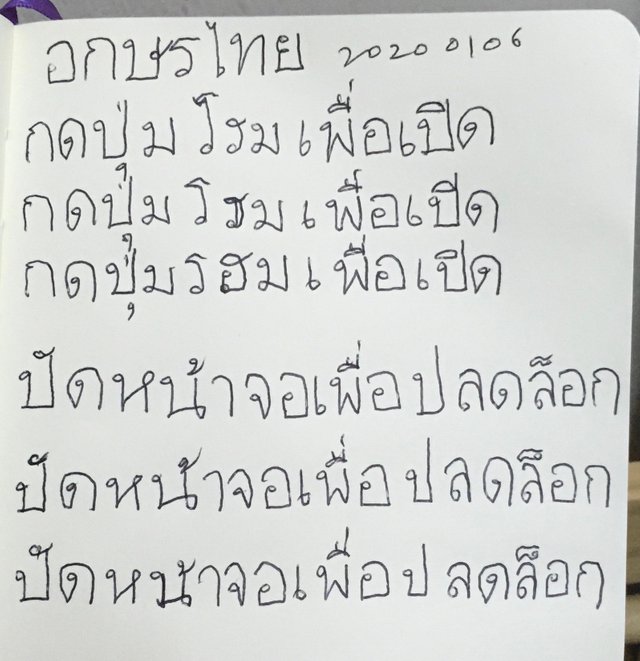 อกษรไทย 20200106
กดปุ่มโฮมเพื่อเปิด
กดปุ่มโฮมเพื่อเปิด
กดปุ่มรฮมเพื่อเปิด
ปัดหน้าจอเพื่อปลดล็อก
ปัดหน้าจอเพื่อปลดล็อก
ปัดหน้าจอเพื่อปลดล็อก